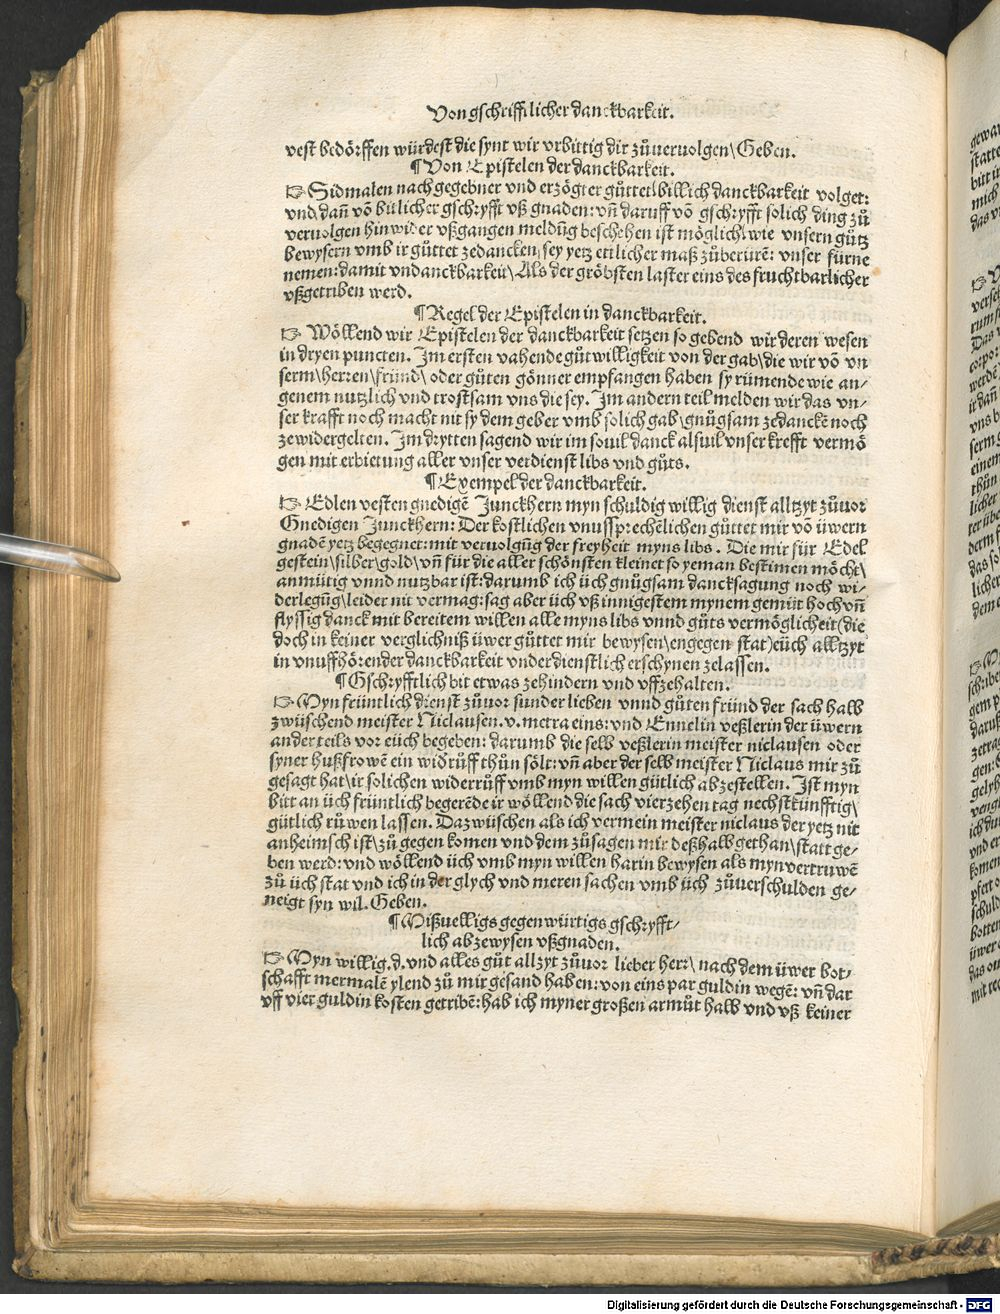 Von gschrifftlicher danckbarkeit.
vest bedörffen würdest die synt wir vrbittig dir zůuervolgen\ Geben.
¶ Von Epistelen der danckbarkeit.
☞ Sidmalen nach gegebner vnd erzögter güttet billich danckbarkeit volget:
vnd dañ võ bitlicher gschryfft vß gnaden: vñ daruff võ gschryfft solich ding zů
veruolgen hinwider vßgangen meldũg beschehen ist möglich\ wie vnsern gůtz
bewysern vmb ir güttet zedancken\ sey yetz ettlicher maß zůberürẽ: vnser fürne
nemen: damit vndanckbarkeit\ Als der gröbsten laster eins des fruchtbarlicher
vßgetriben werd.
¶ Regel der Epistelen in danckbarkeit.
☞ Wöllend wir Epistelen der danckbarkeit setzen so gebend wir deren wesen
in dryen puncten. Im ersten vahende gůtwilligkeit von der gab\ die wir võ vn
serm\ herren\ fründ\ oder gůten gönner empfangen haben sy rümende wie an/
genem nutzlich vnd trostsam vns die sey. Im andern teil melden wir das vn/
ser krafft noch macht nit sy dem geber vmb solich gab\ gnůgsam zedanckẽ noch
zewidergelten. Im drytten sagend wir im souil danck alsuil vnser krefft vermö
gen mit erbietung aller vnser verdienst libs vnd gůts.
¶ Exempel der danckbarkeit.
☞ Edlen vesten gnedigẽ Junckhern myn schuldig willig dienst alltzyt zůuor
Gnedigen Junckhern: Der kostlichen vnussprechẽlichen güttet mir võ üwern
gnadẽ yetz begegnet: mit veruolgũg der freyheit myns libs. Die mir für Edel
gestein\ silber\ gold\ vñ für die aller schönsten kleinet so yeman bestimen möcht\
anmütig vnnd nutzbar ist: darumb ich üch gnůgsam dancksagung noch wi/
derlegũg\ leider nit vermag: sag aber üch vß innigestem mynem gemüt hoch vñ
flyssig danck mit bereitem willen alle myns libs vnnd gůts vermöglicheit (die
doch in keiner verglichniß üwer güttet mir bewysen\ engegen stat) eüch alltzyt
in vnuffhörender danckbarkeit vnderdienstlich erschynen zelassen.
¶ Gschryfftlich bit etwas zehindern vnd vffzehalten.
☞ Myn früntlich dienst zůuor sunder lieben vnnd gůten fründ der sach halb
zwüschend meister Niclausen. v. metra eins: vnd Ennelin veßlerin der üwern
anderteils vor eüch begeben: darumb die selb veßlerin meister niclausen oder
syner hußfrowẽ ein widrůff thůn sölt: vñ aber der selb meister Niclaus mir zů
gesagt hat\ ir solichen widerrůff vmb myn willen gütlich abzestellen. Ist myn
bitt an üch früntlich begerẽde ir wöllend die sach vierzehen tag nechstkünfftig\
gütlich růwen lassen. Dazwüschen als ich vermein meister niclaus der yetz nit
anheimsch ist\ zů gegen komen vnd dem zůsagen mir deßhalb gethan\ statt ge/
ben werd: vnd wöllend üch vmb myn willen harin bewysen als myn vertruwẽ
zů üch stat vnd ich in der glych vnd meren sachen vmb üch zůuerschulden ge/
neigt syn wil. Geben.
¶ Mißuelligs gegenwürtigs gschryfft/
lich abzewysen vßgnaden.
☞ Myn willig. d. vnd alles gůt allzyt zůuor lieber herr\ nach dem üwer bot/
schafft mermalẽ ylend zů mir gesand haben: von eins par guldin wegẽ: vñ dar
vff vier guldin kosten getribẽ: hab ich myner großen armůt halb vnd vß keiner
Digitalisierung gefördert durch die Deutsche Forschungsgemeinschaft - DFG